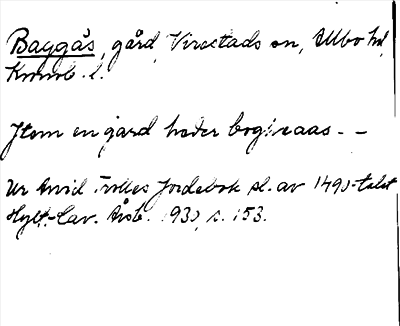 Baggås, gård, Virestads sn, Allbo hd,
Kronob. l.
Jtem en gard heder bogixaas - -
Ur Arvid Trolles Jordebok sl. av 1490-talet
Hylt.-Cav. Årsb. 1930, s. 153.